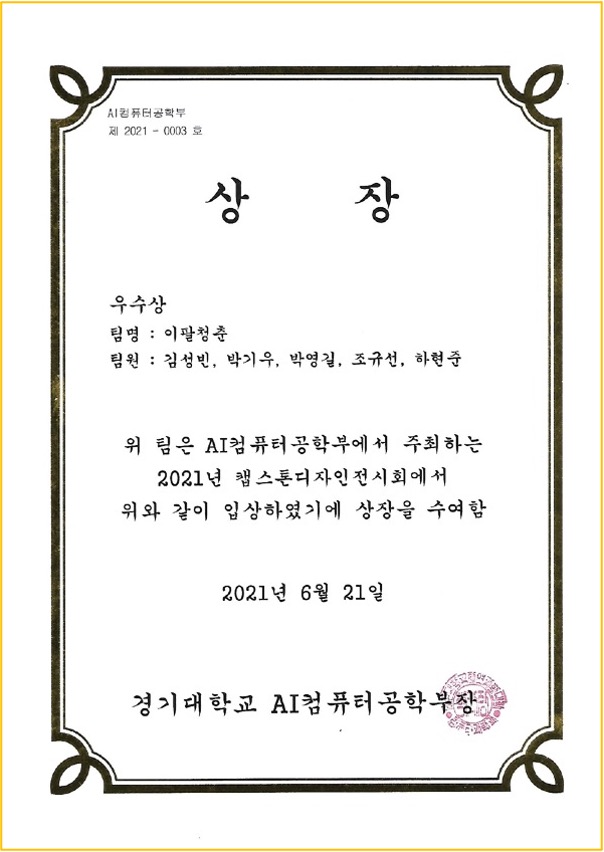 AI컴퓨터공학부
제 2021 - 0003 호
상 장
우수상
팀명 : 이팔청춘
팀원 : 김성빈, 박기우, 박영길, 조규선, 하현준
위 팀은 AI컴퓨터공학부에서 주최하는
2021년 캡스톤디자인전시회에서
위와 같이 입상하였기에 상장을 수여함
2021년 6월 21일
경기대학교 AI컴퓨터공학부장